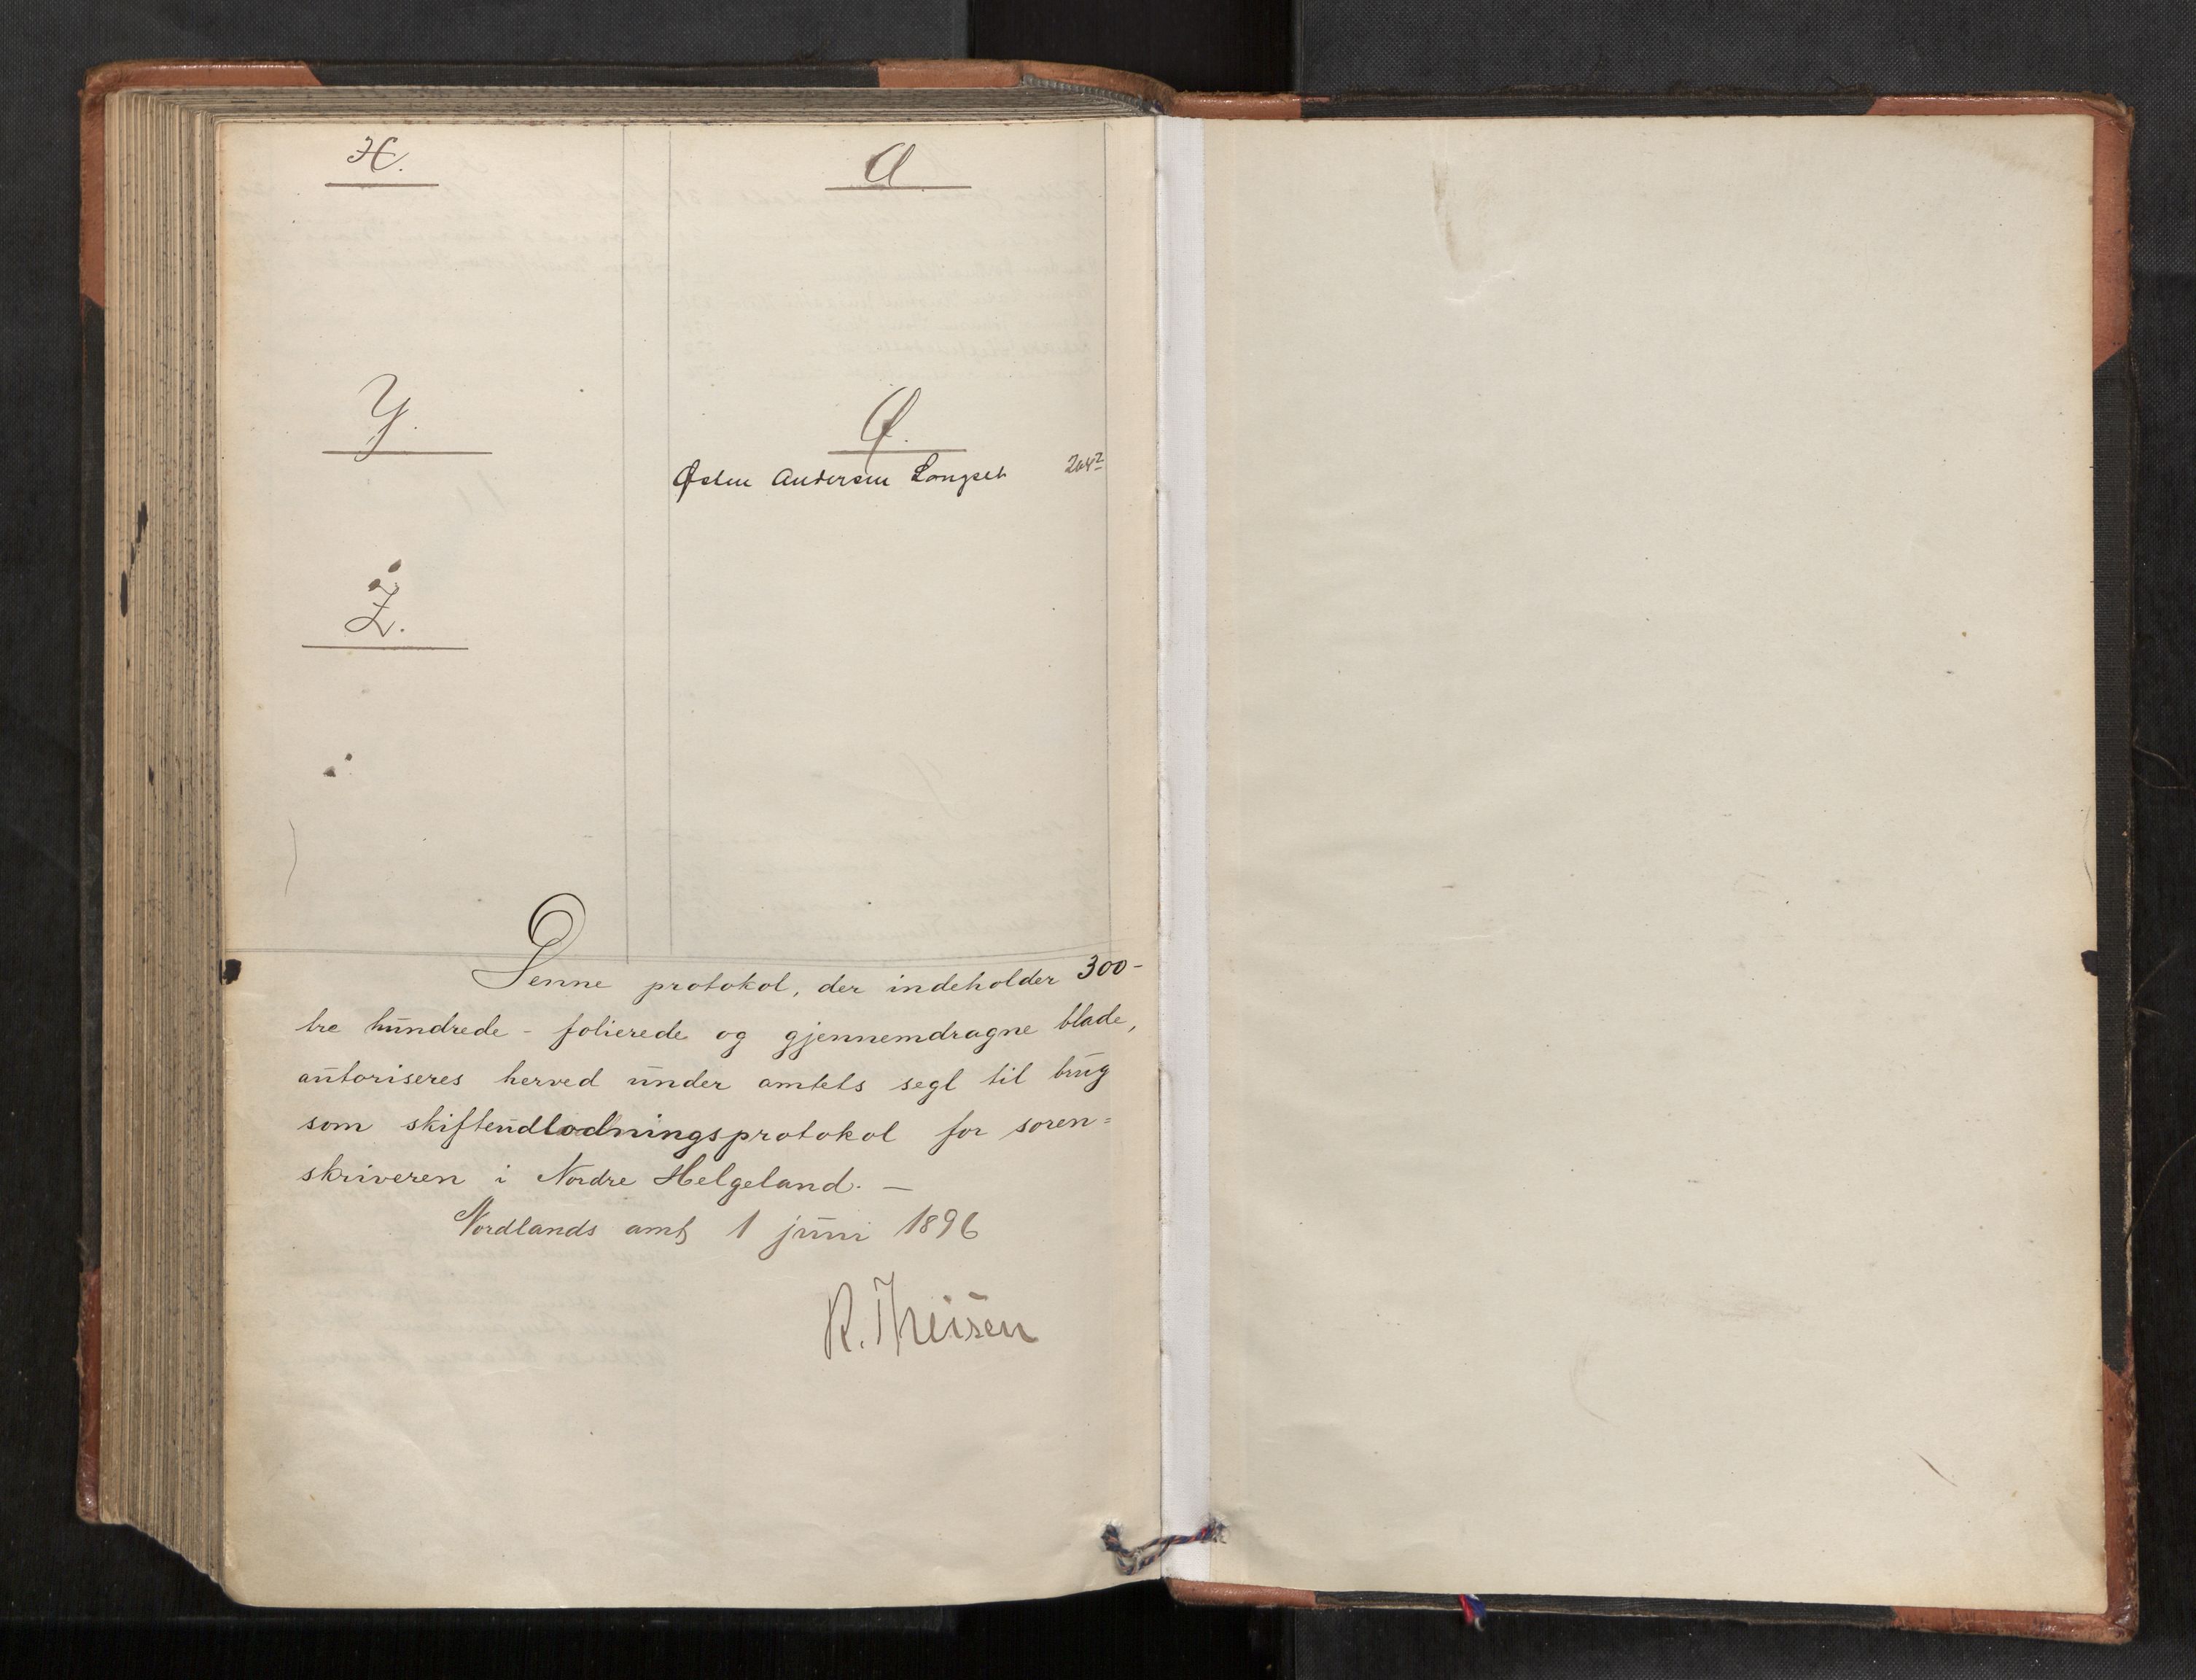 X.
Y.
Z.
Æ
Ø.
Østen Andersen Langset 264²
Denne protokol, der indeholder 300-
tre hundrede - folierede og gjennemdragne blade,
autoriseres herved under amtets segl til brug
som skifteudlodningsprotokol for soren=
skriveren i Nordre Helgeland. —
Nordlands amt 1 juni 1896
R. Theisen